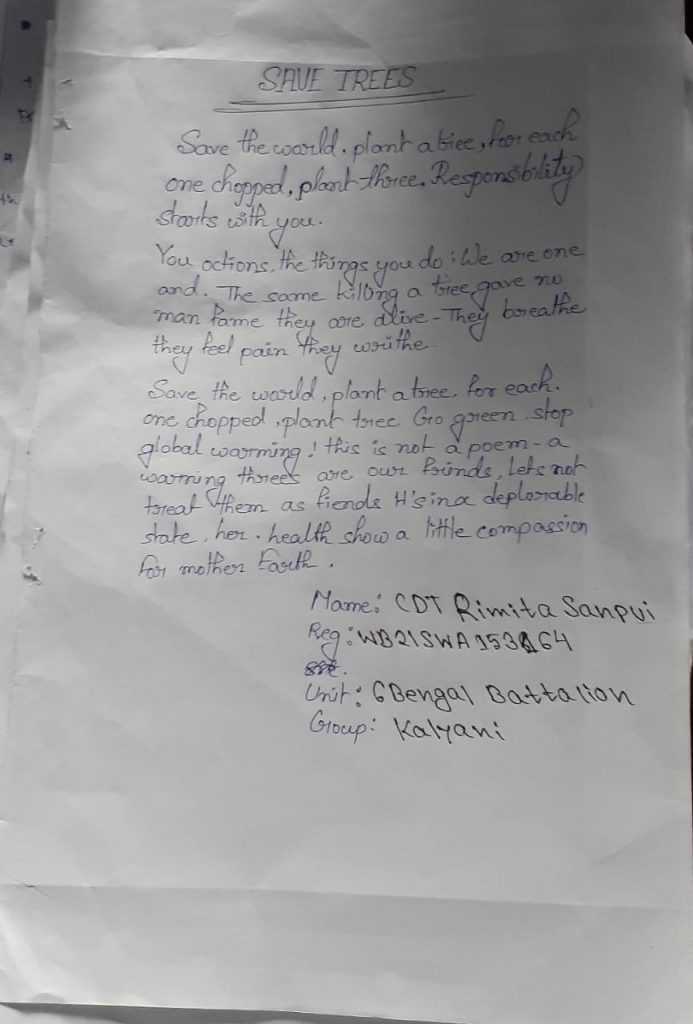 SAVE TREES
Save the world, plant a tree, for each
one chopped, plant three, Responsibility
starts with you.
You actions, the things you do; We are one
and. The same killing a tree gave no
man fame they are alive - They breathe
they feel pain they writhe.
Save the world, plant a tree. for each.
one chopped, plant tree Go green stop
global warming! this is not a poem - a
warning threes are our frinds, Lets not
treat them as fiends It's in a deplorable
state, her. health show a little compassion
for mother Earth.
Name: CDT Rimita Sanpui
Reg: WB21SWA153164
Unit: 6 Bengal Battalion
Group: Kalyani